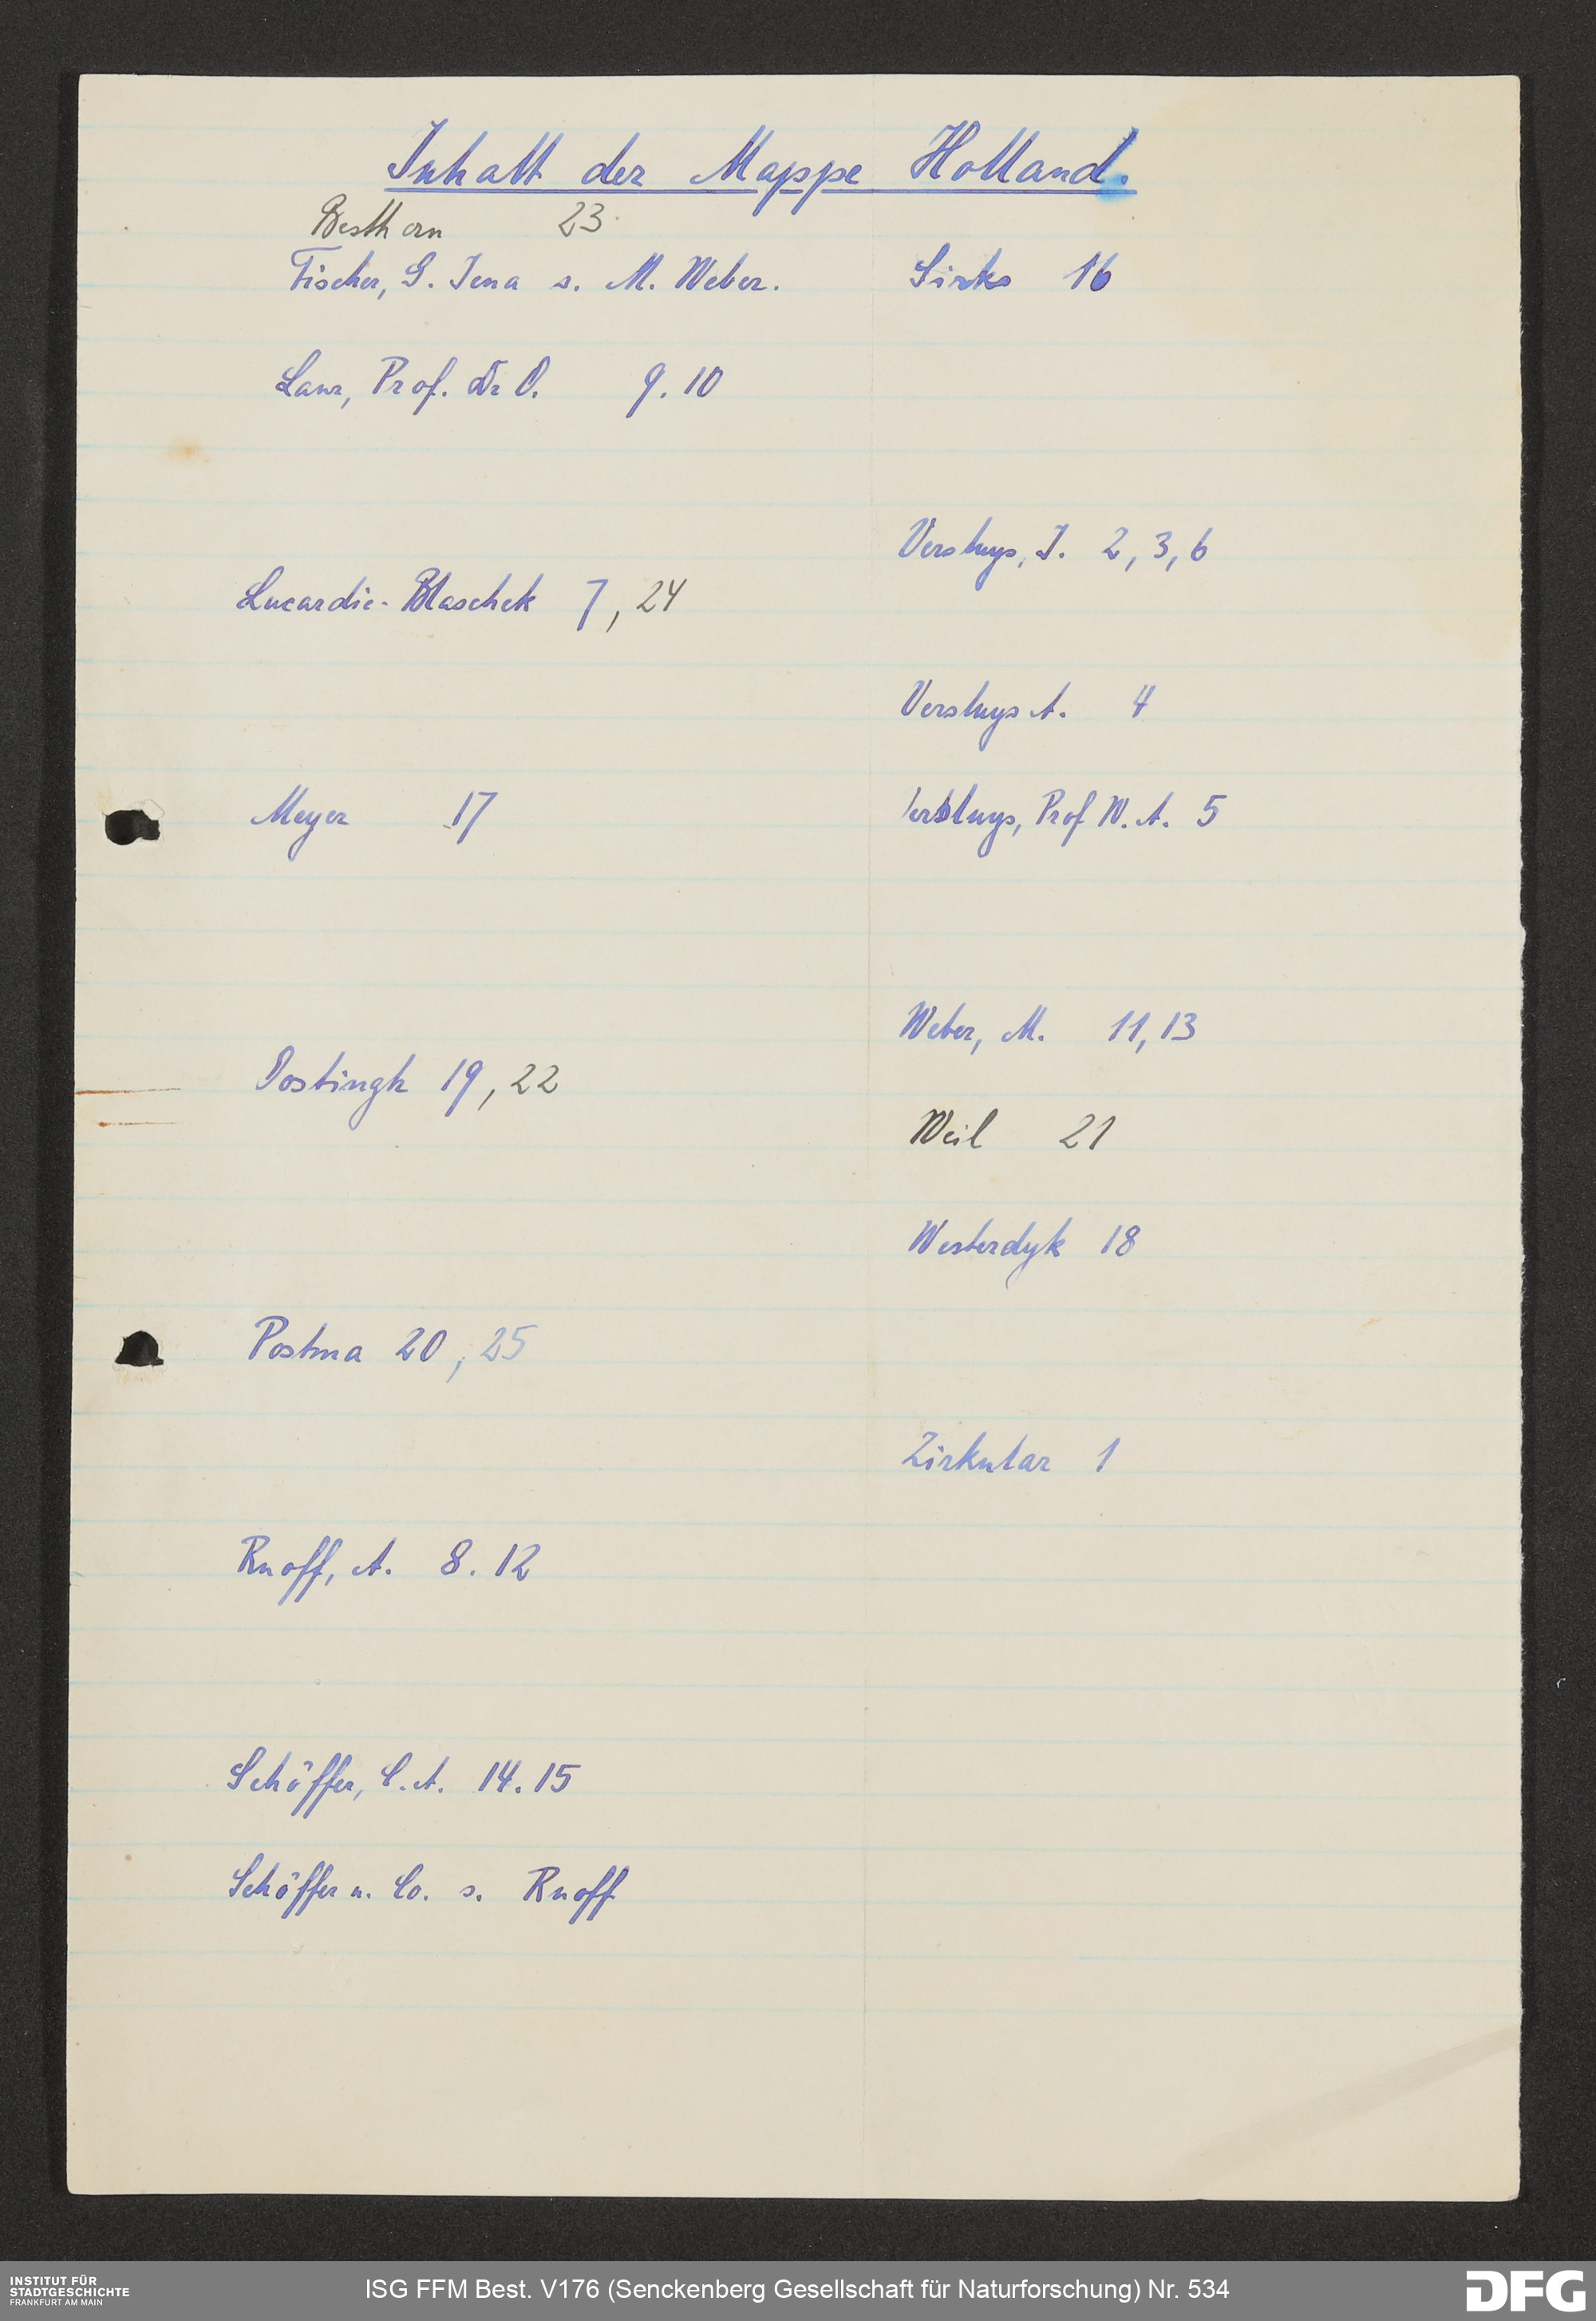 Inhalt der Mappe Holland.
Besthorn 23
Fischer, G. Jena s. M. Weber.
Lanz, Prof. Dr O. 9. 10
Lucardie-Blaschek 7, 24
Meyer 17
Oostingh 19, 22
Postma 20, 25
Ruoff, A. 8. 12
Schöffer, C. A. 14. 15
Schöffer u. Co. s. Ruoff
Sirks 16
Versluys, J. 2, 3, 6
Versluys A. 4
Versluys, Prof W. A. 5
Weber, M. 11, 13
Weil 21
Westerdyk 18
Zirkular 1
INSTITUT FÜR
STADTGESCHICHTE
FRANKFURT AM MAIN
ISG FFM Best. V176 (Senckenberg Gesellschaft für Naturforschung) Nr. 534
DFG